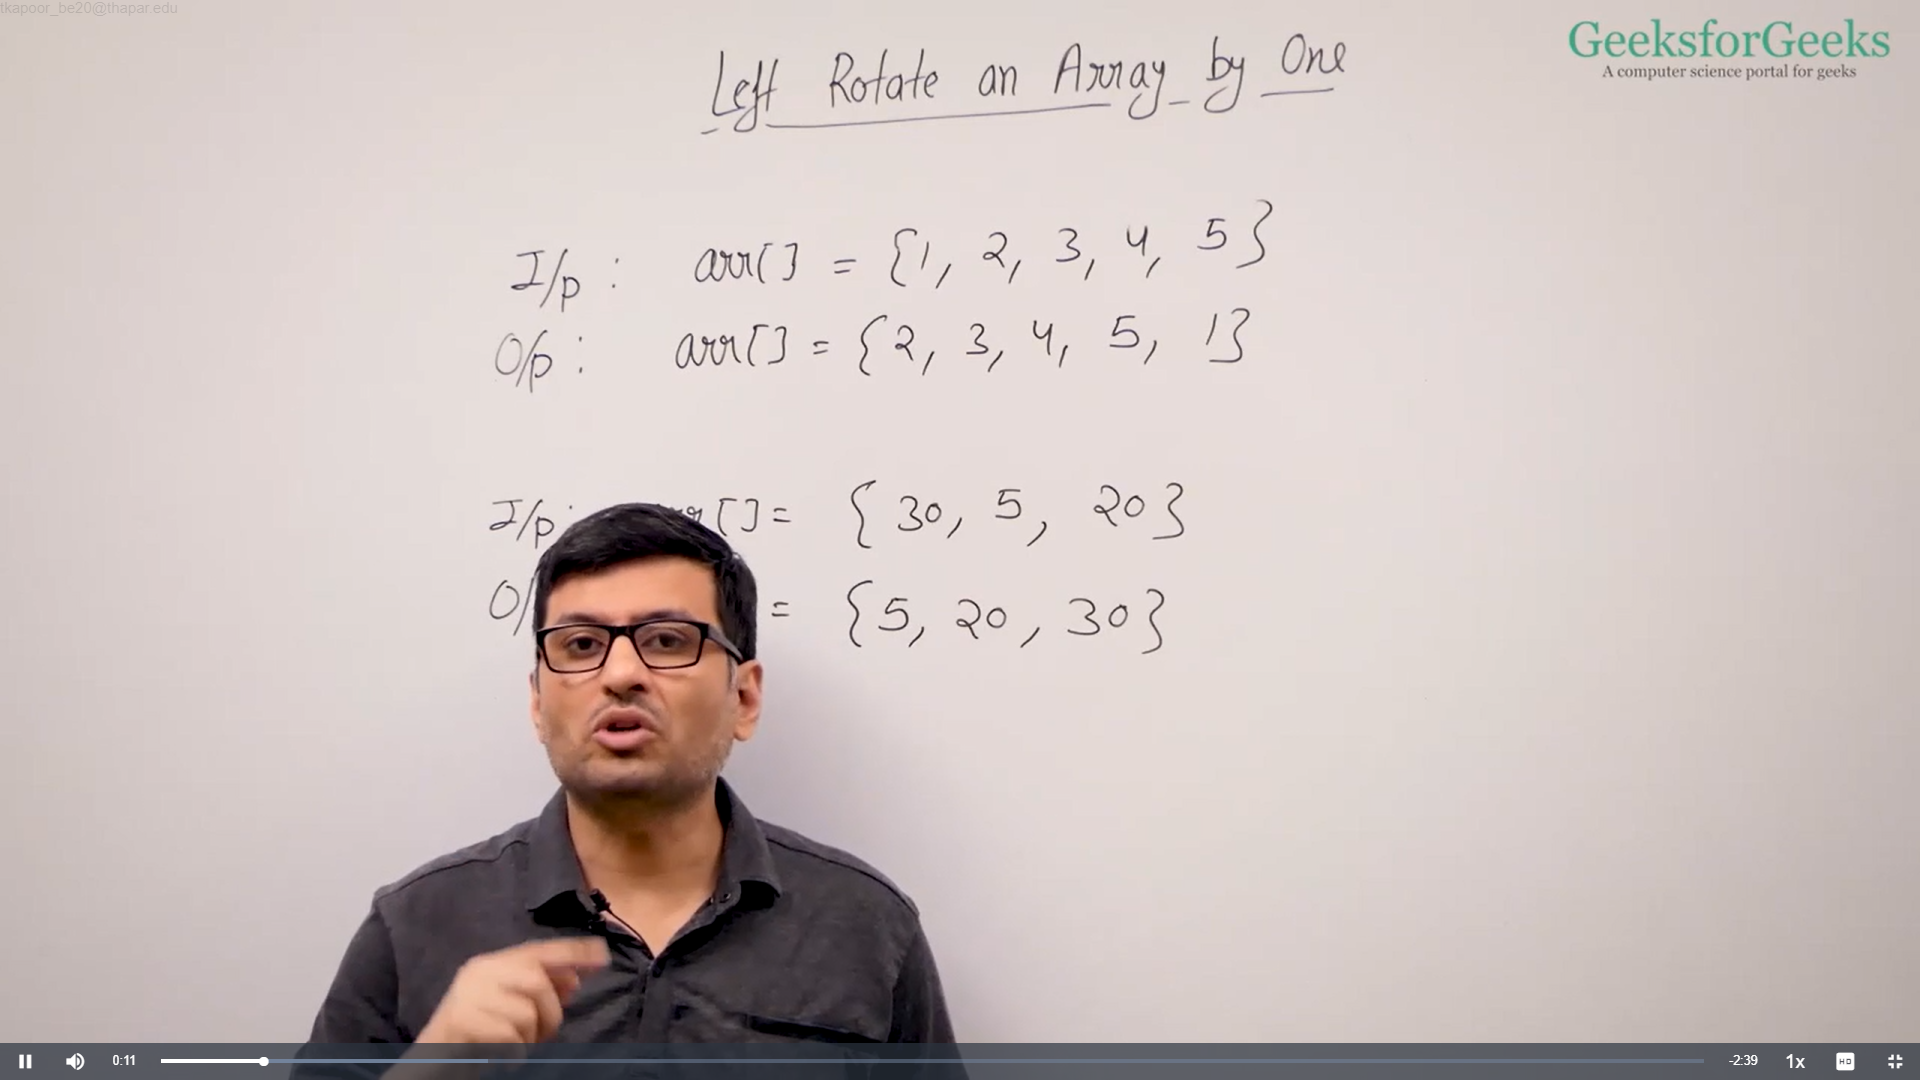 tkapoor_be20@thapar.edu
GeeksforGeeks
A computer science portal for geeks
Left Rotate an Array by One
I/p : arr[] = {1, 2, 3, 4, 5}
O/p : arr[] = {2, 3, 4, 5, 1}
I/p : []= {30, 5, 20}
= {5, 20, 30}
0:11
-2:39
1x
HD